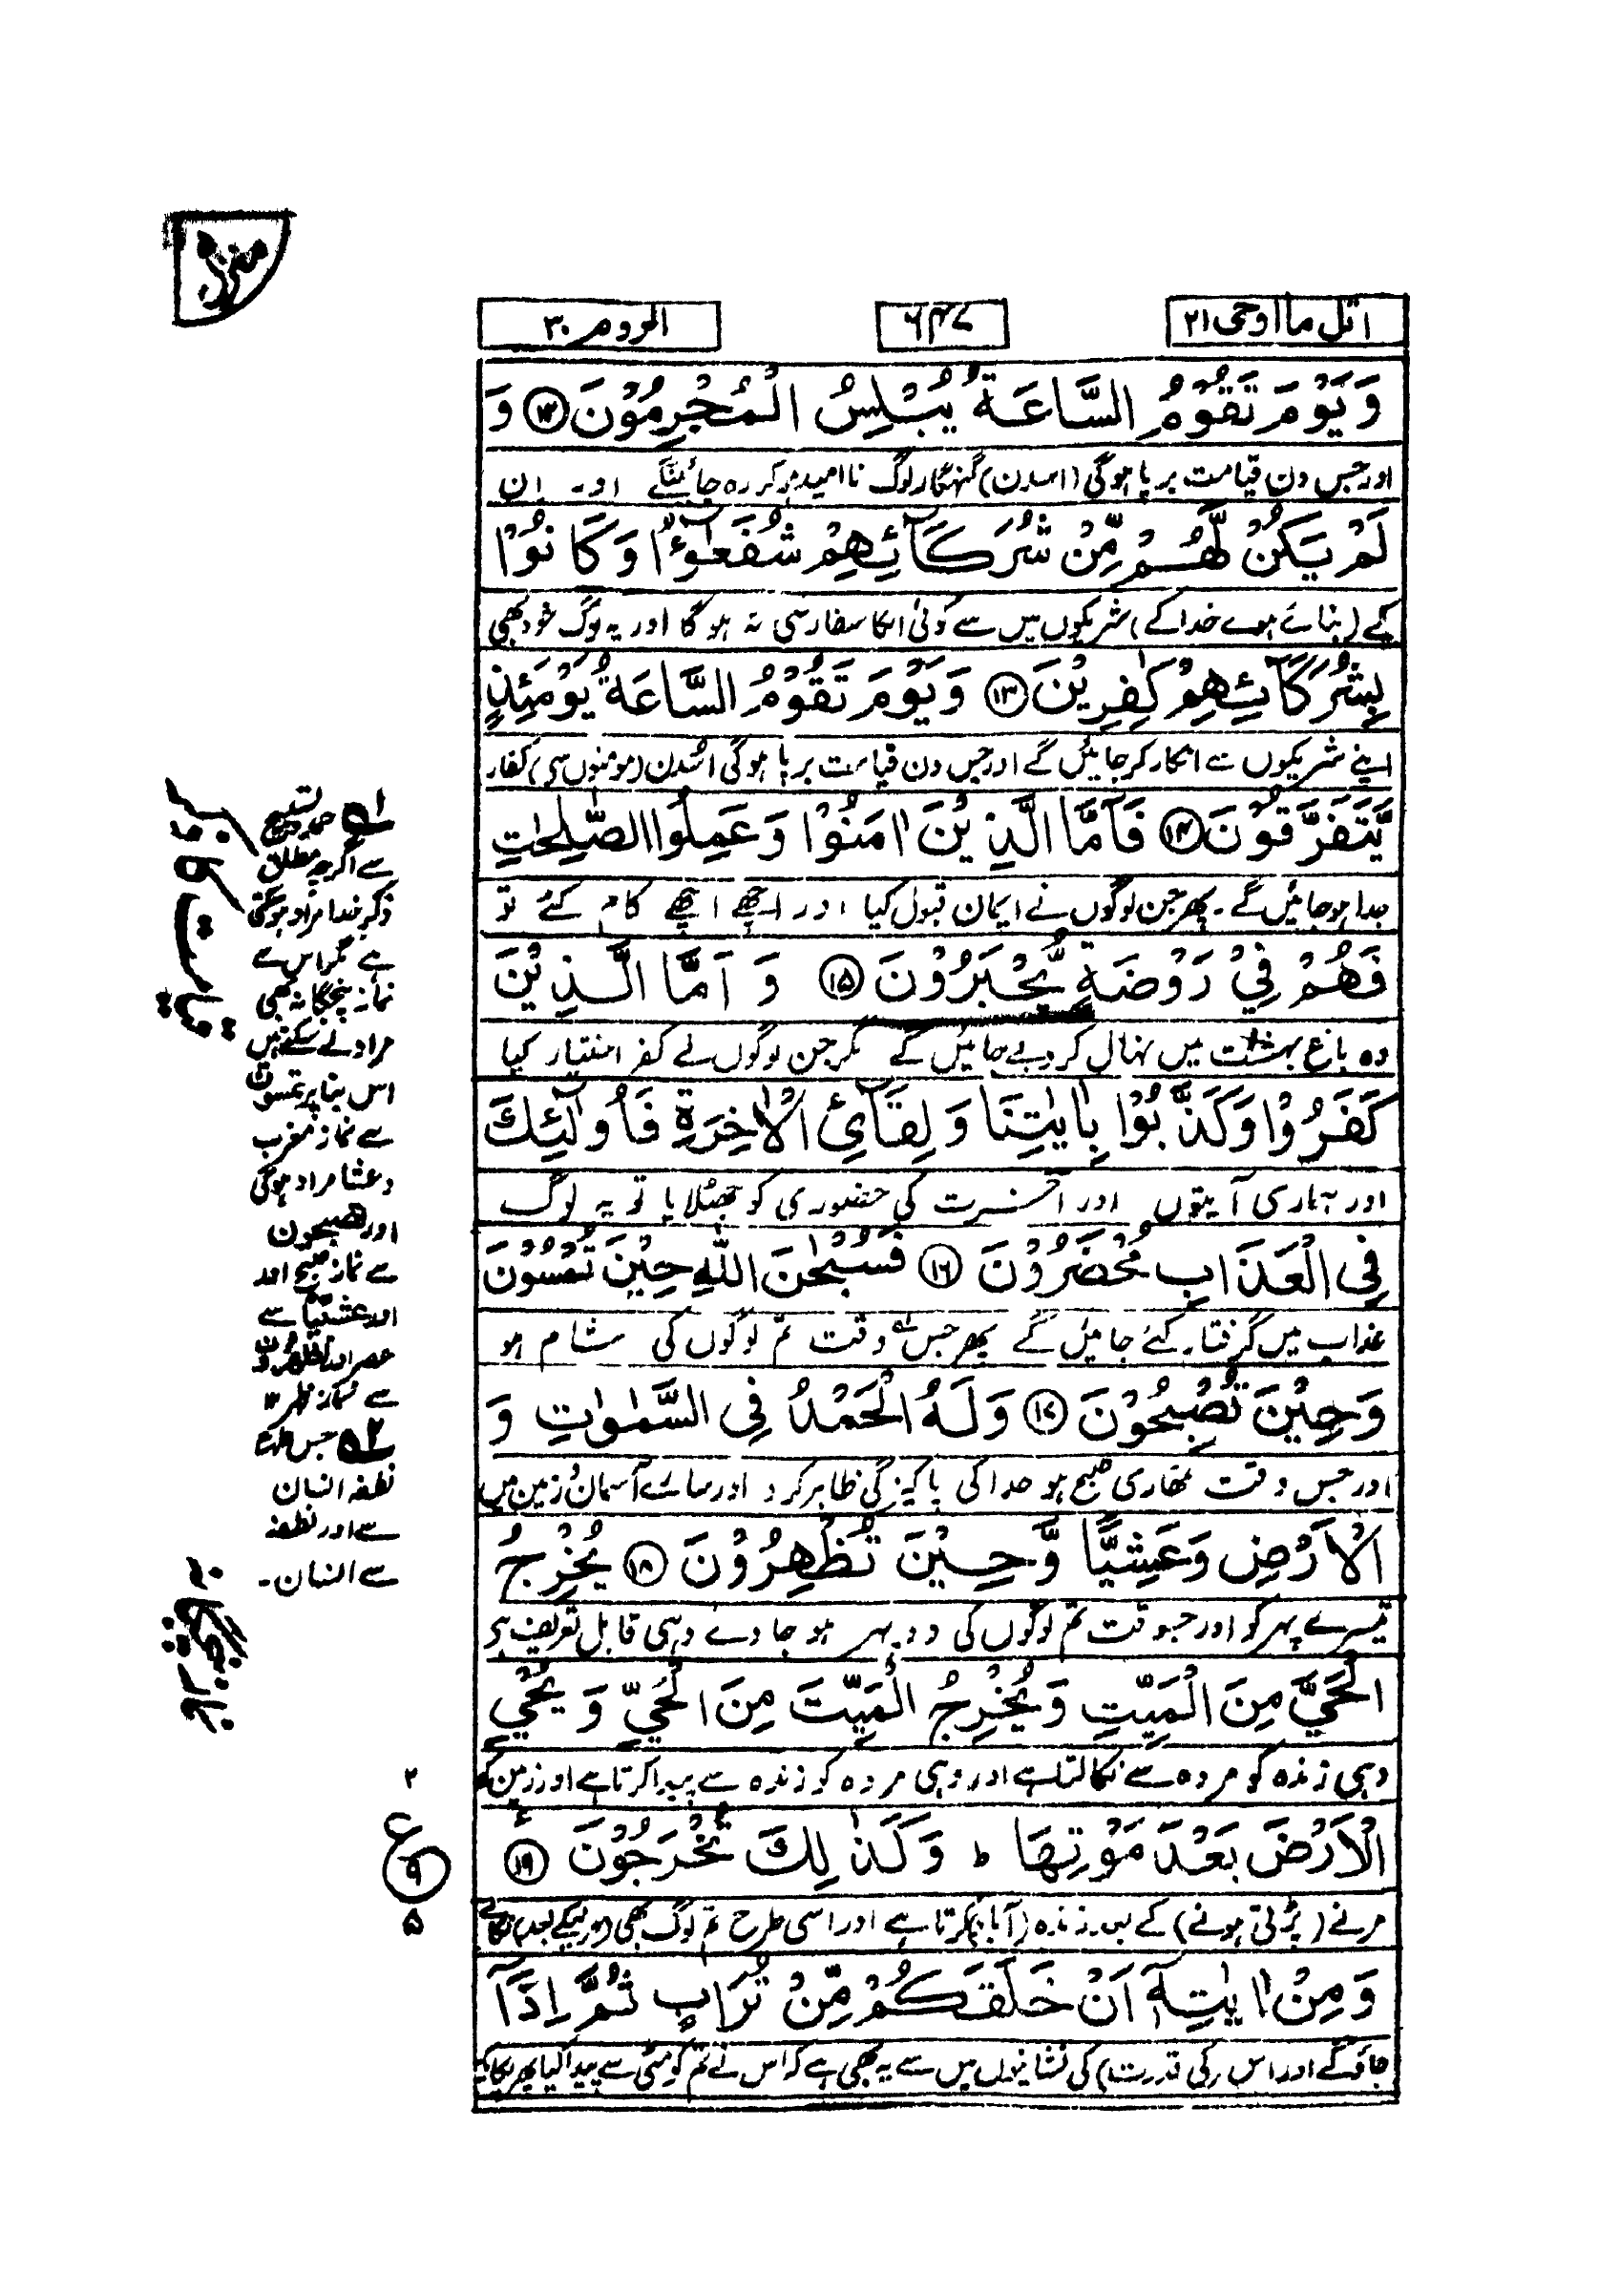 اتل ما اوحی ۲۱
۶۴۷
الروم ۳۰
وَيَوْمَ تَقُوْمُ السَّاعَةُ يُبْلِسُ الْمُجْرِمُوْنَ ۝۱۲ وَ
اور جس دن قیامت برپا ہوگی (اسدن) گنہگار لوگ ناامید ہو کر رہ جائینگے اور ان
لَمْ يَكُنْ لَّهُمْ مِّنْ شُرَكَآئِهِمْ شُفَعٰٓؤُا وَكَانُوْا
کے (بنائے ہوے خدا کے) شریکوں میں سے کوئی انکا سفارسی نہ ہوگا اور یہ لوگ خود بھی
بِشُرَكَآئِهِمْ كٰفِرِيْنَ ۝۱۳ وَيَوْمَ تَقُوْمُ السَّاعَةُ يَوْمَئِذٍ
اپنے شریکوں سے انکار کر جائیں گے اور جس دن قیامت برپا ہوگی اُسدن (مومنوں سی) کفار
يَّتَفَرَّقُوْنَ ۝۱۴ فَاَمَّا الَّذِيْنَ اٰمَنُوْا وَعَمِلُوا الصّٰلِحٰتِ
جدا ہو جائیں گے۔ پھر جن لوگوں نے ایمان قبول کیا اور اچھے اچھے کام کئے تو
فَهُمْ فِيْ رَوْضَةٍ يُّحْبَرُوْنَ ۝۱۵ وَ اَمَّا الَّذِيْنَ
وہ باغ بہشت میں نہال کر دیے جائیں گے مگر جن لوگوں نے کفر اختیار کیا
كَفَرُوْا وَكَذَّبُوْا بِاٰيٰتِنَا وَلِقَآئِ الْاٰخِرَةِ فَاُولٰٓئِكَ
اور ہماری آیتوں اور آخرت کی حضوری کو جھٹلایا تو یہ لوگ
فِي الْعَذَابِ مُحْضَرُوْنَ ۝۱۶ فَسُبْحٰنَ اللّٰهِ حِيْنَ تُمْسُوْنَ
عذاب میں گرفتار کئے جائیں گے پھر جس وقت تم لوگوں کی شام ہو
وَحِيْنَ تُصْبِحُوْنَ ۝۱۷ وَلَهُ الْحَمْدُ فِي السَّمٰوٰتِ وَ
اور جس وقت تمھاری صبح ہو خدا کی پاکیزگی ظاہر کرو اور سارے آسمان و زمین میں
الْاَرْضِ وَعَشِيًّا وَّحِيْنَ تُظْهِرُوْنَ ۝۱۸ يُخْرِجُ
تیسرے پہر کو اور جسوقت تم لوگوں کی دوپہر ہو جاوے وہی قابل تعریف ہے
الْحَيَّ مِنَ الْمَيِّتِ وَيُخْرِجُ الْمَيِّتَ مِنَ الْحَيِّ وَيُحْيِ
وہی زندہ کو مردہ سے نکالتا ہے اور وہی مردہ کو زندہ سے پیدا کرتا ہے اور زمین کو
الْاَرْضَ بَعْدَ مَوْتِهَا ط وَكَذٰلِكَ تُخْرَجُوْنَ ۝۱۹
مرنے (پڑتی ہونے) کے بعد زندہ (آباد) کرتا ہے اور اسی طرح تم لوگ بھی (مرنیکے بعد) نکالے
وَمِنْ اٰيٰتِهٖٓ اَنْ خَلَقَكُمْ مِّنْ تُرَابٍ ثُمَّ اِذَآ
جاؤگے اور اس (کی قدرت) کی نشانیوں میں سے یہ بھی ہے کہ اس نے تم کو مٹی سے پیدا کیا پھر یکایک
منزل
۱ حمد و تسبیح
سے اگرچہ مطلق
ذکر خدا مراد ہو سکتی
ہے مگر اس سے
نماز پنجگانہ بھی
مراد لے سکتے ہیں
اس بنا پر تمسون
سے نماز مغرب
و عشا مراد ہوگی
اور تصبحون
سے نماز صبح اور
اور عشیّا سے
عصر اور تظہرون
سے نماز ظہر ۱۲
۲ جس طرح
نطفہ انسان
سے اور نطفہ
سے انسان۔
۲
ع
۹
۵